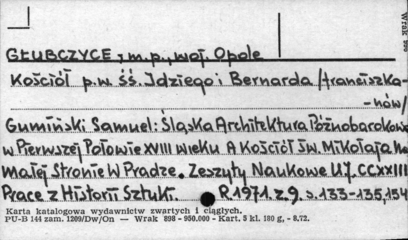 GŁUBCZYCE, m.p., woj. Opole
Kościół p.w. śś. Idziego i Bernarda /franciszka-
-nów/
Gumiński Samuel: Śląska Architektura Późnobarokowa
w Pierwszej Połowie XVIII wieku A Kościół Św. Mikołaja Na
Małej Stronie W Pradze. Zeszyty Naukowe UJ. CCXXIII
Prace z Historii Sztuki. R 1971 z 9. s. 133-135, 154
Karta katalogowa wydawnictw zwartych i ciągłych.
PU-B 144 zam. 1209/Dw/On — Wrak 898 - 950.000 - Kart. 3 kl. 180 g, - 8.72.
Wrak 898